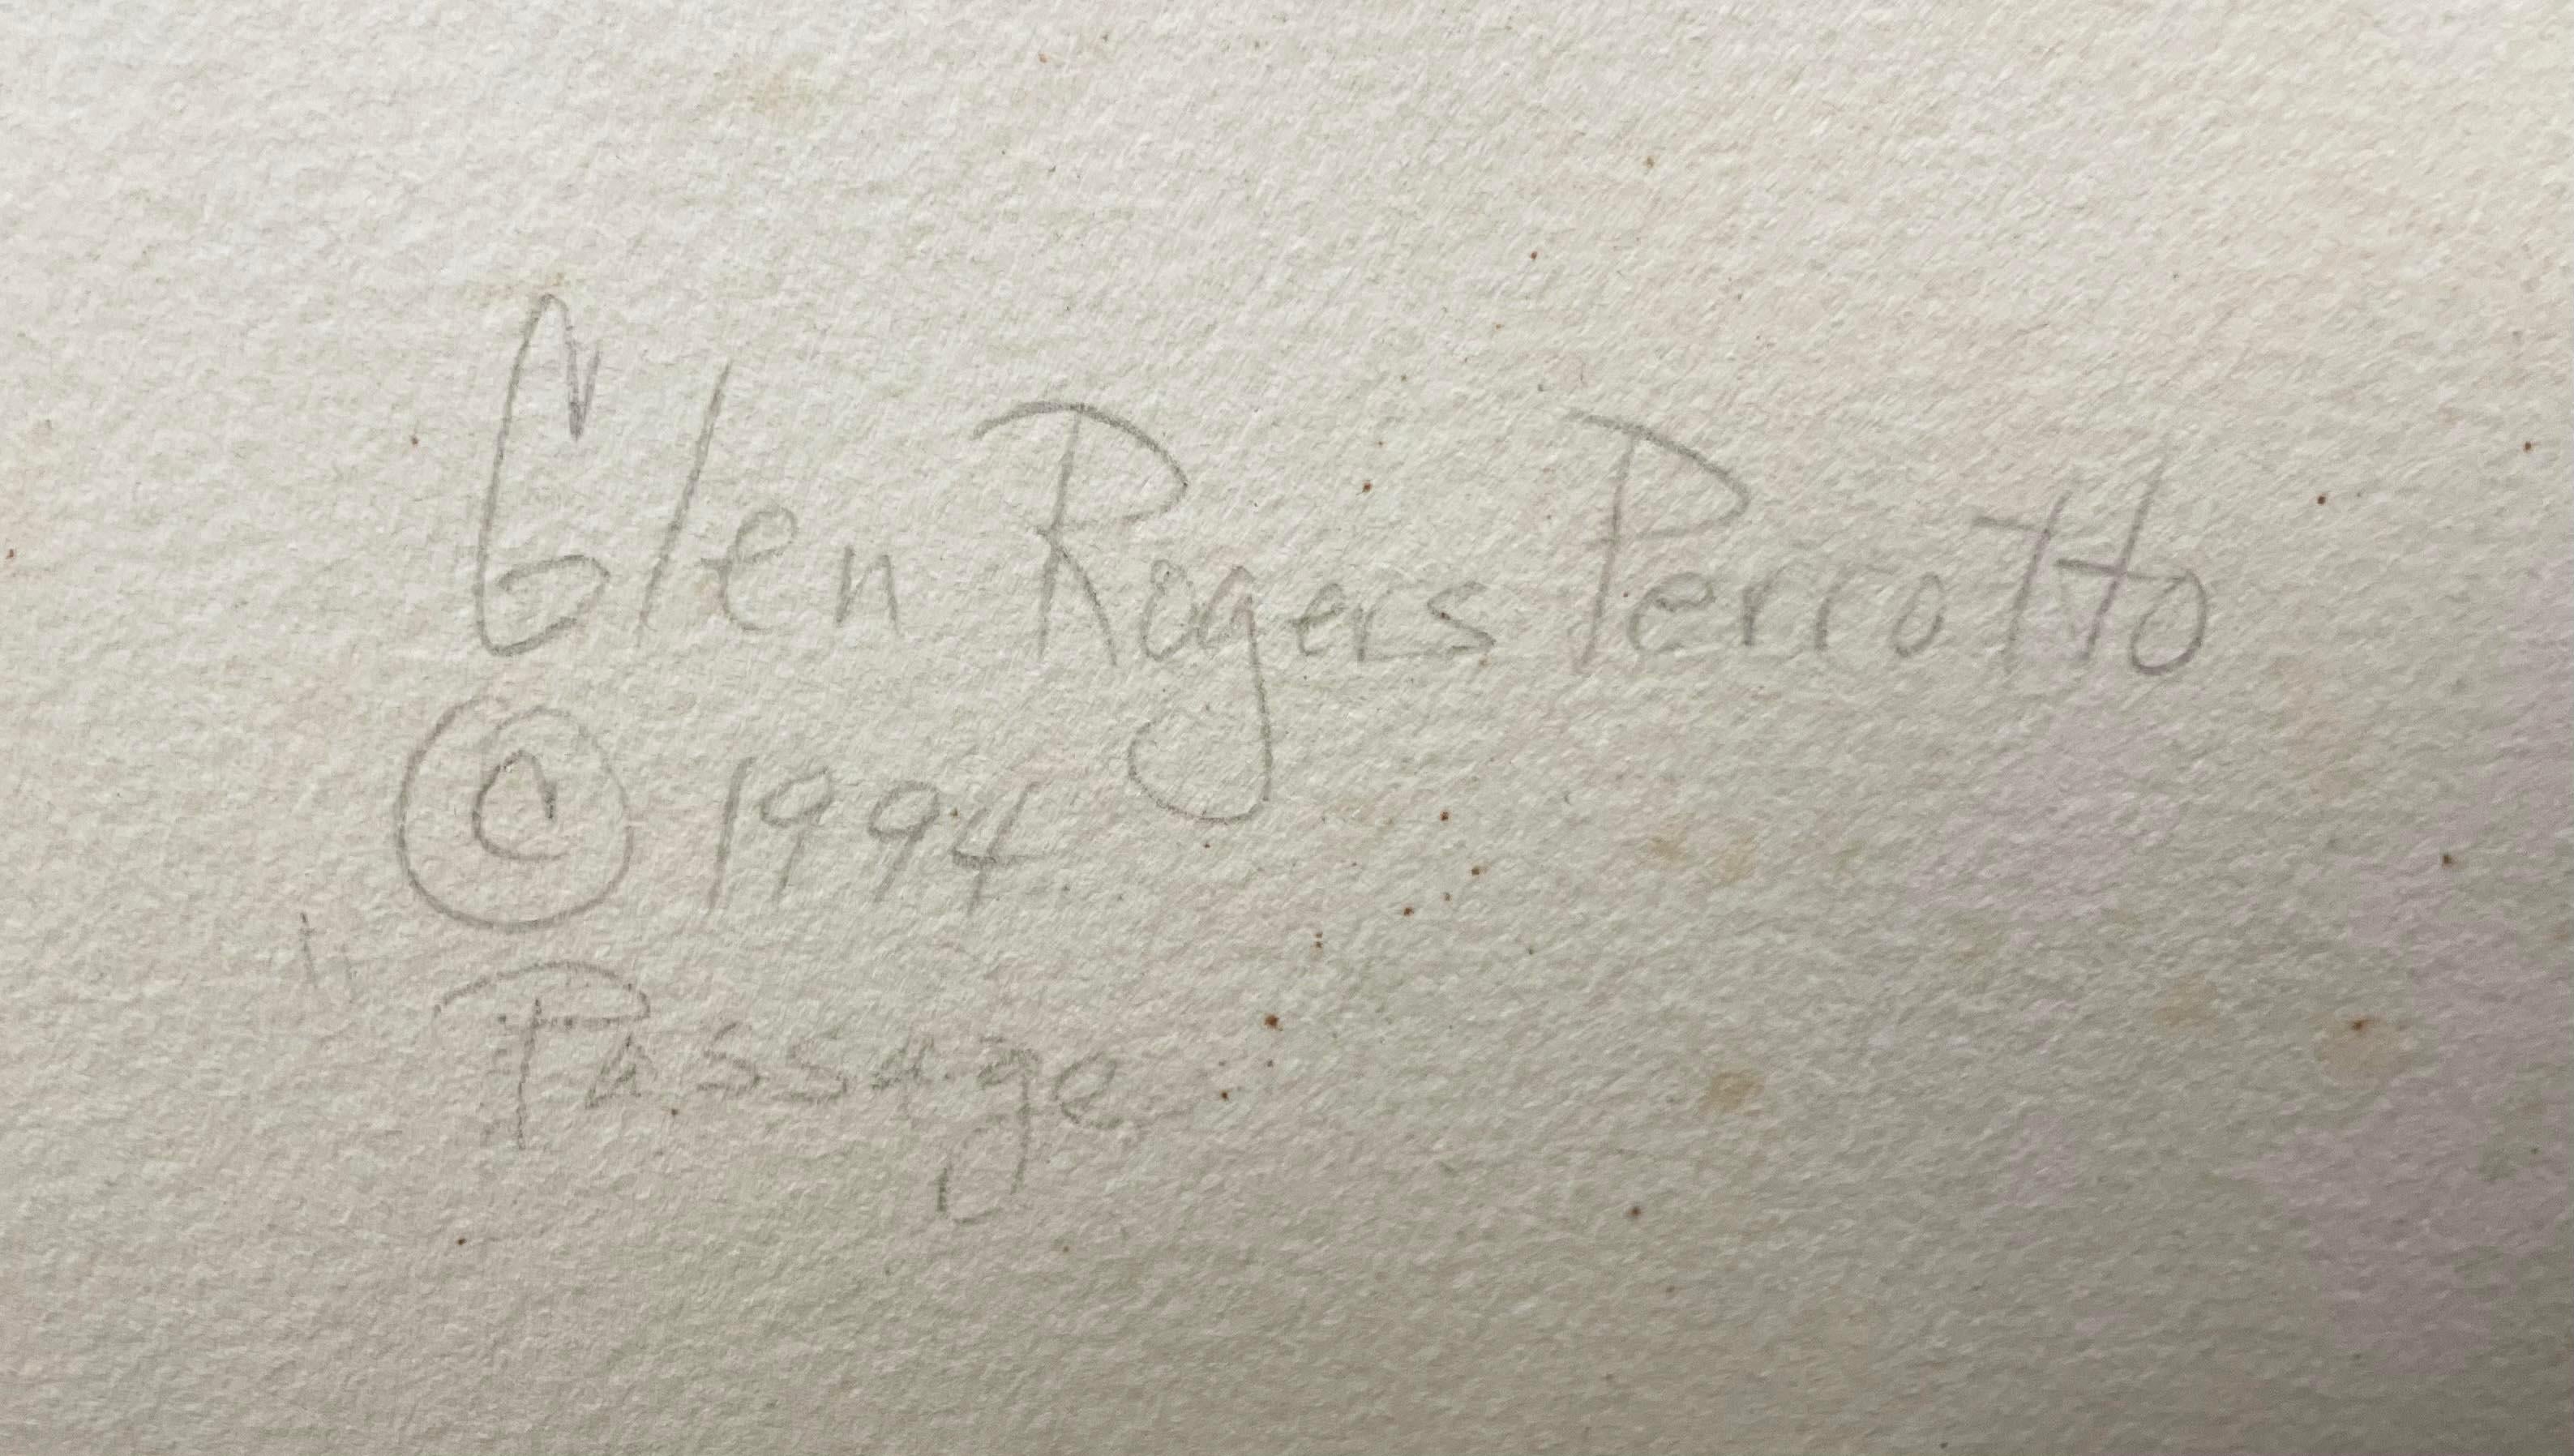 Glen Rogers Perrotto
© 1994
" Passage